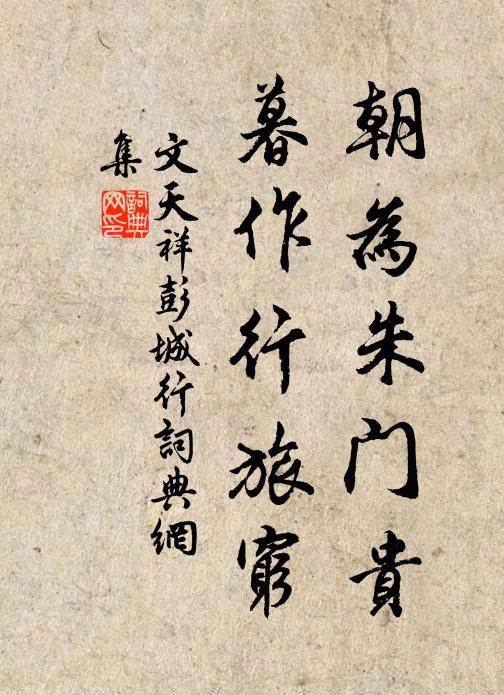 朝為朱門貴
暮作行旅窮
文天祥彭城行詞典網
集
詞典
网印